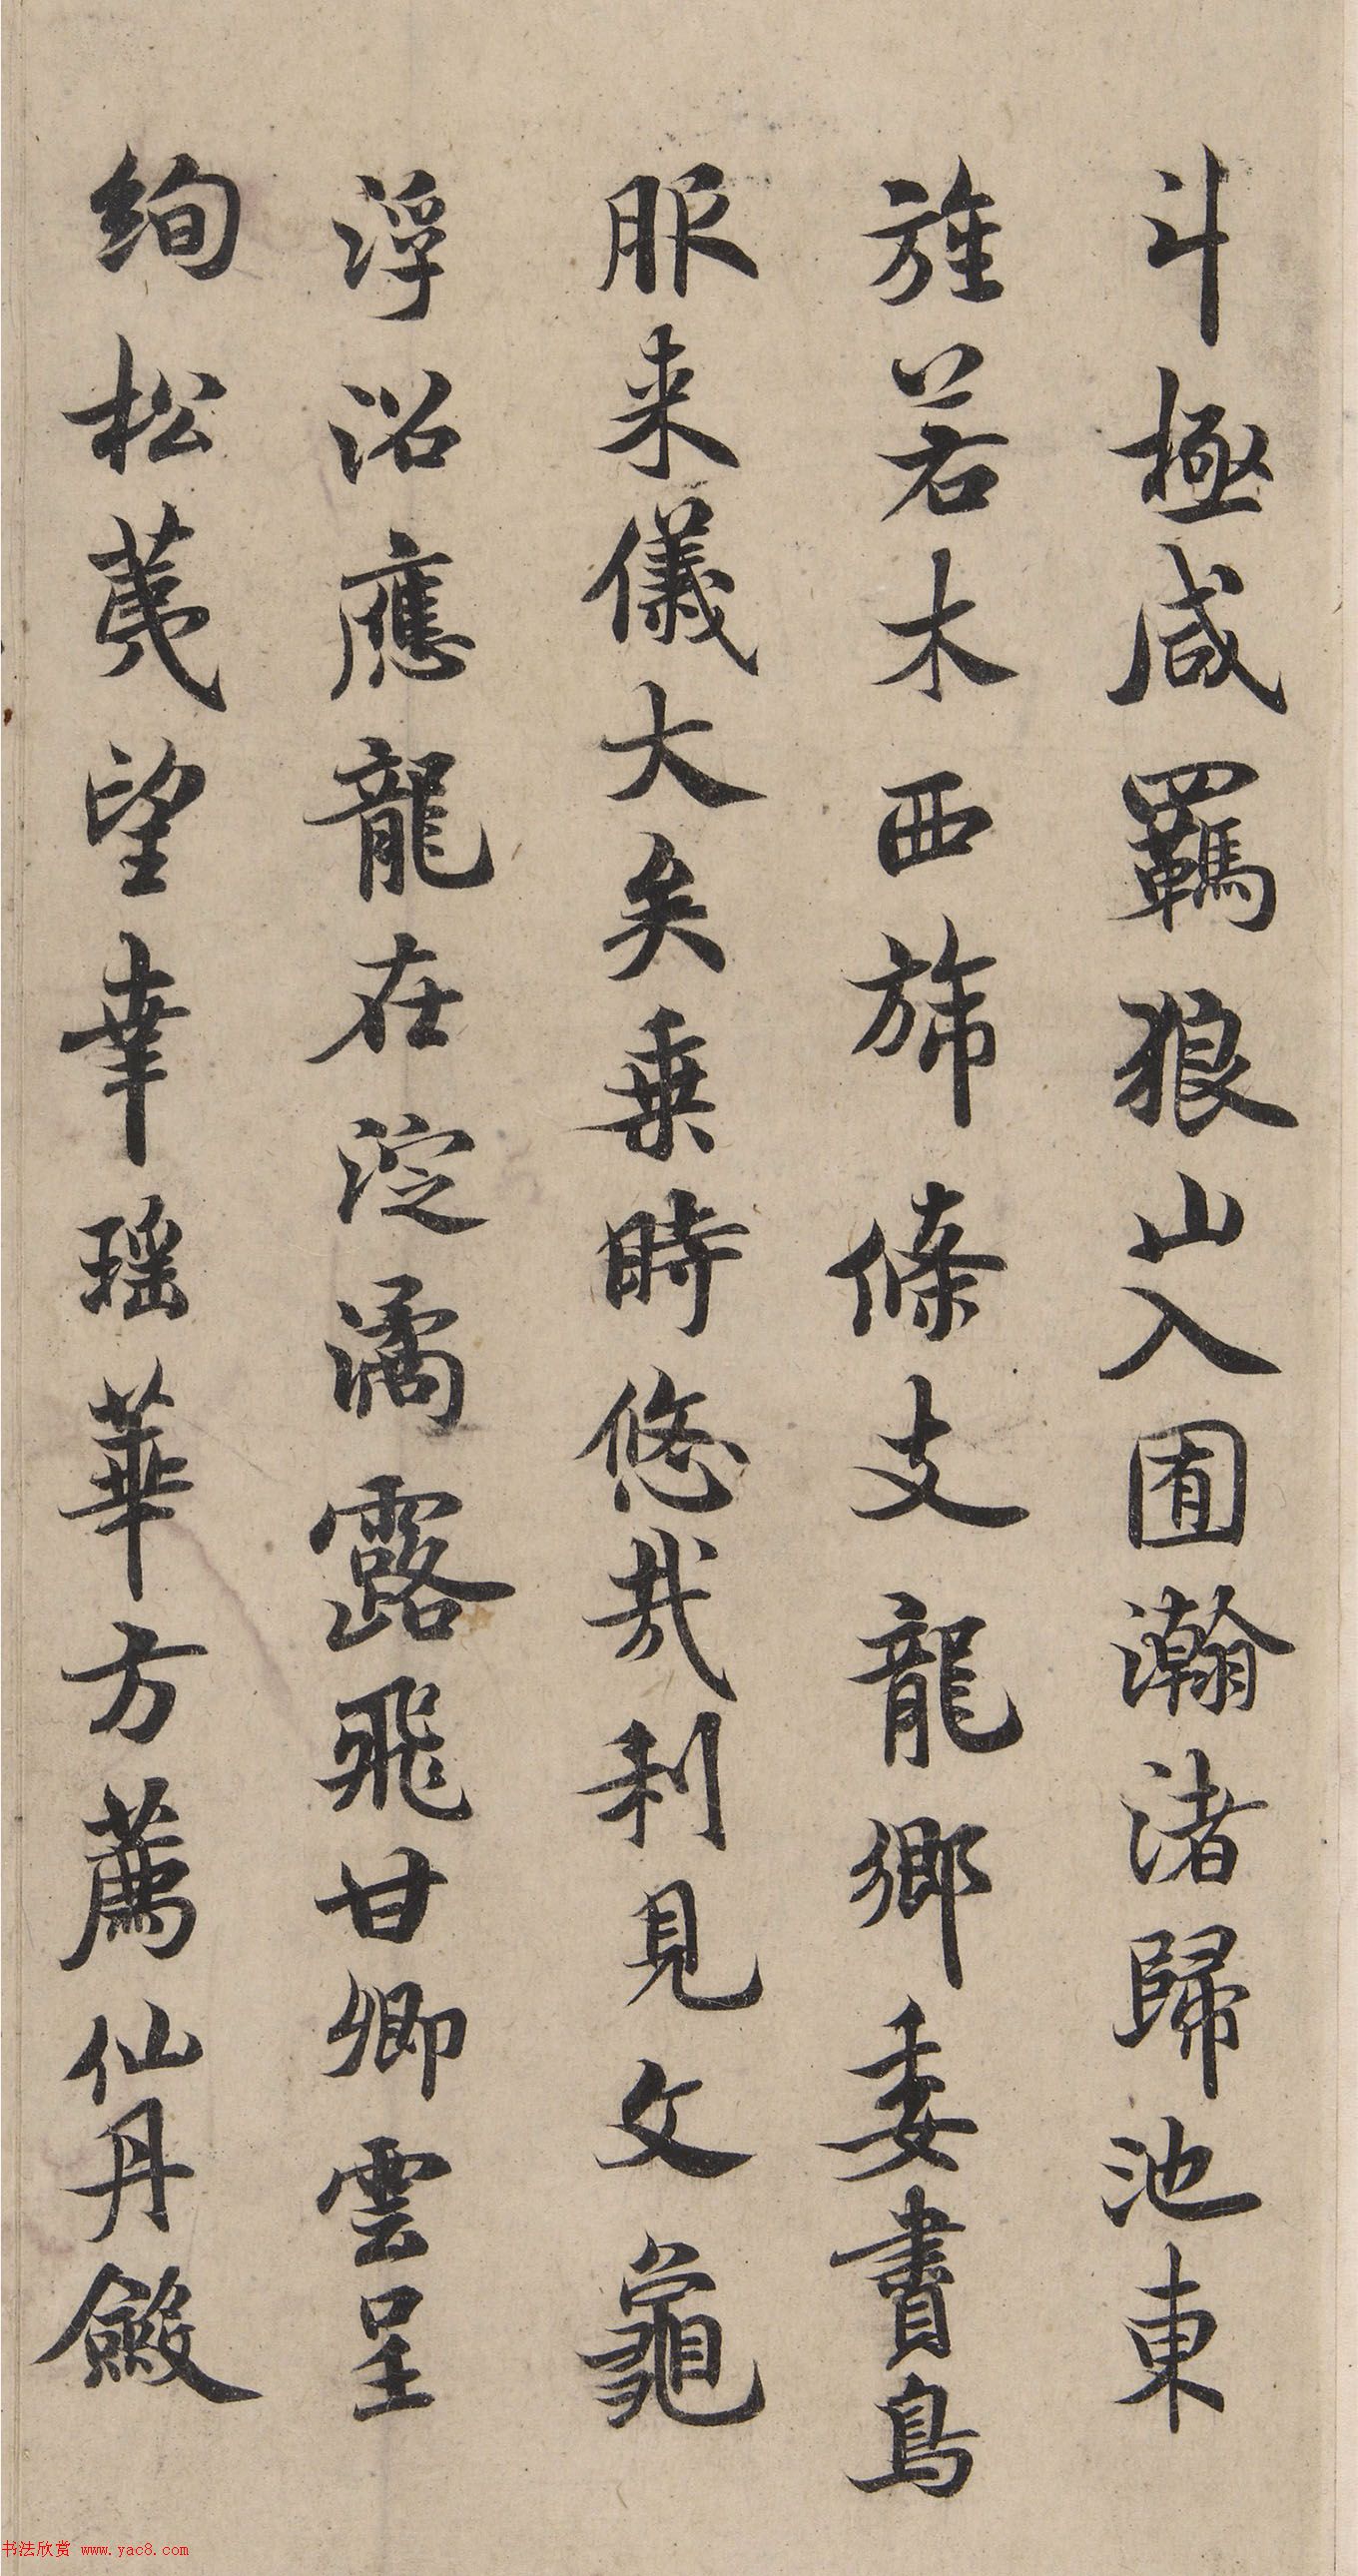 斗極咸羈狼山入囿瀚渚歸池東
旌若木西旆條支龍鄉委書鳥
服来儀大矣乗時悠哉利見文龜
浮沼應龍在淀潏露飛甘卿雲呈
絢松荑望幸瑶華方薦仙丹斂
书法欣赏 www.yac8.com